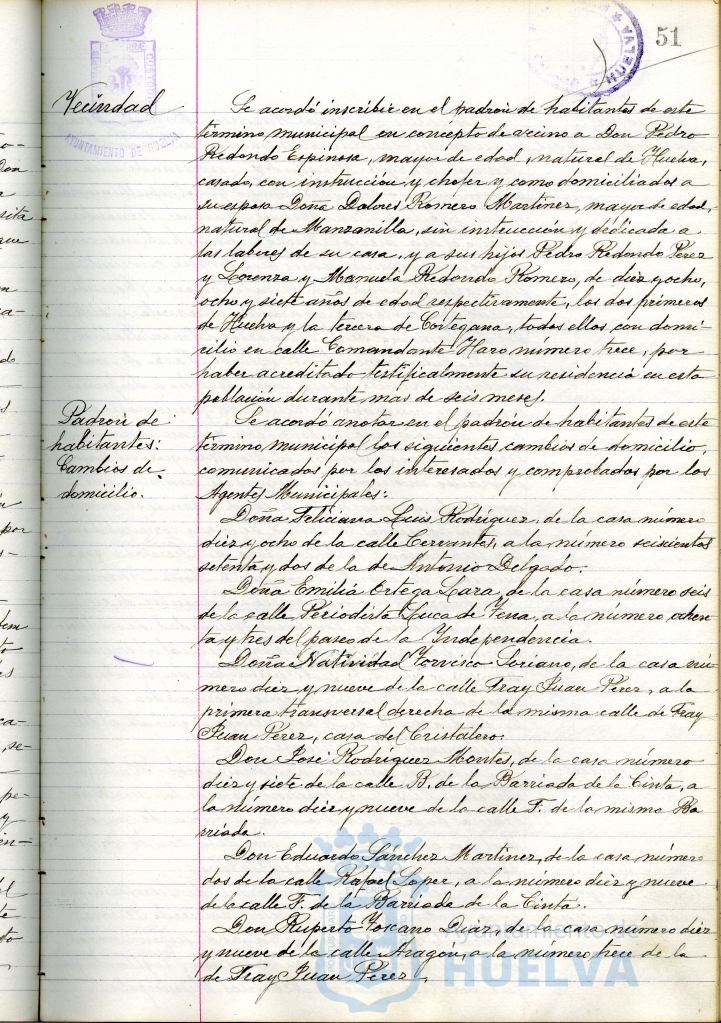 51
AYUNTAMIENTO DE HUELVA
HUELVA
Vecindad
Se acordó inscribir en el padrón de habitantes de este
término municipal en concepto de vecino a Don Pedro
Redondo Espinosa, mayor de edad, natural de Huelva,
casado, con instrucción y chofer y como domiciliados a
su esposa Doña Dolores Romero Martinez, mayor de edad,
natural de Manzanilla, sin instrucción y dedicada a
las labores de su casa, y a sus hijos Pedro Redondo Perez
y Lorenza y Manuela Redondo Romero, de diez y ocho,
ocho y siete años de edad respectivamente, los dos primeros
de Huelva y la tercera de Cortegana, todos ellos con domi-
cilio en calle Comandante Haro número trece, por
haber acreditado testificalmente su residencia en esta
población durante mas de seis meses.
Padron de
habitantes:
Cambios de
domicilio.
Se acordó anotar en el padrón de habitantes de este
término municipal los siguientes cambios de domicilio,
comunicados por los interesados y comprobados por los
Agentes Municipales:
Doña Feliciana Luis Rodríguez, de la casa número
diez y ocho de la calle Cervantes, a la número seiscientos
setenta y dos de la de Antonio Delgado.
Doña Emilia Ortega Lara, de la casa número seis
de la calle Periodista Luca de Tena, a la número ochen
ta y tres del paseo de la Independencia.
Doña Natividad Torvisco Soriano, de la casa nú-
mero diez y nueve de la calle Fray Juan Perez, a la
primera transversal derecha de la misma calle de Fray
Juan Pérez, casa del Cristalero.
Don José Rodríguez Montes, de la casa número
diez y siete de la calle B. de la Barriada de la Cinta, a
la número diez y nueve de la calle F. de la misma Ba
rriada.
Don Eduardo Sánchez Martinez, de la casa número
dos de la calle Rafael Lopez, a la número diez y nueve
de la calle F. de la Barriada de la Cinta.
Don Ruperto Toscano Diaz, de la casa número diez
y nueve de la calle Aragón, a la número trece de la
de Fray Juan Perez,
Ayuntamiento de
HUELVA